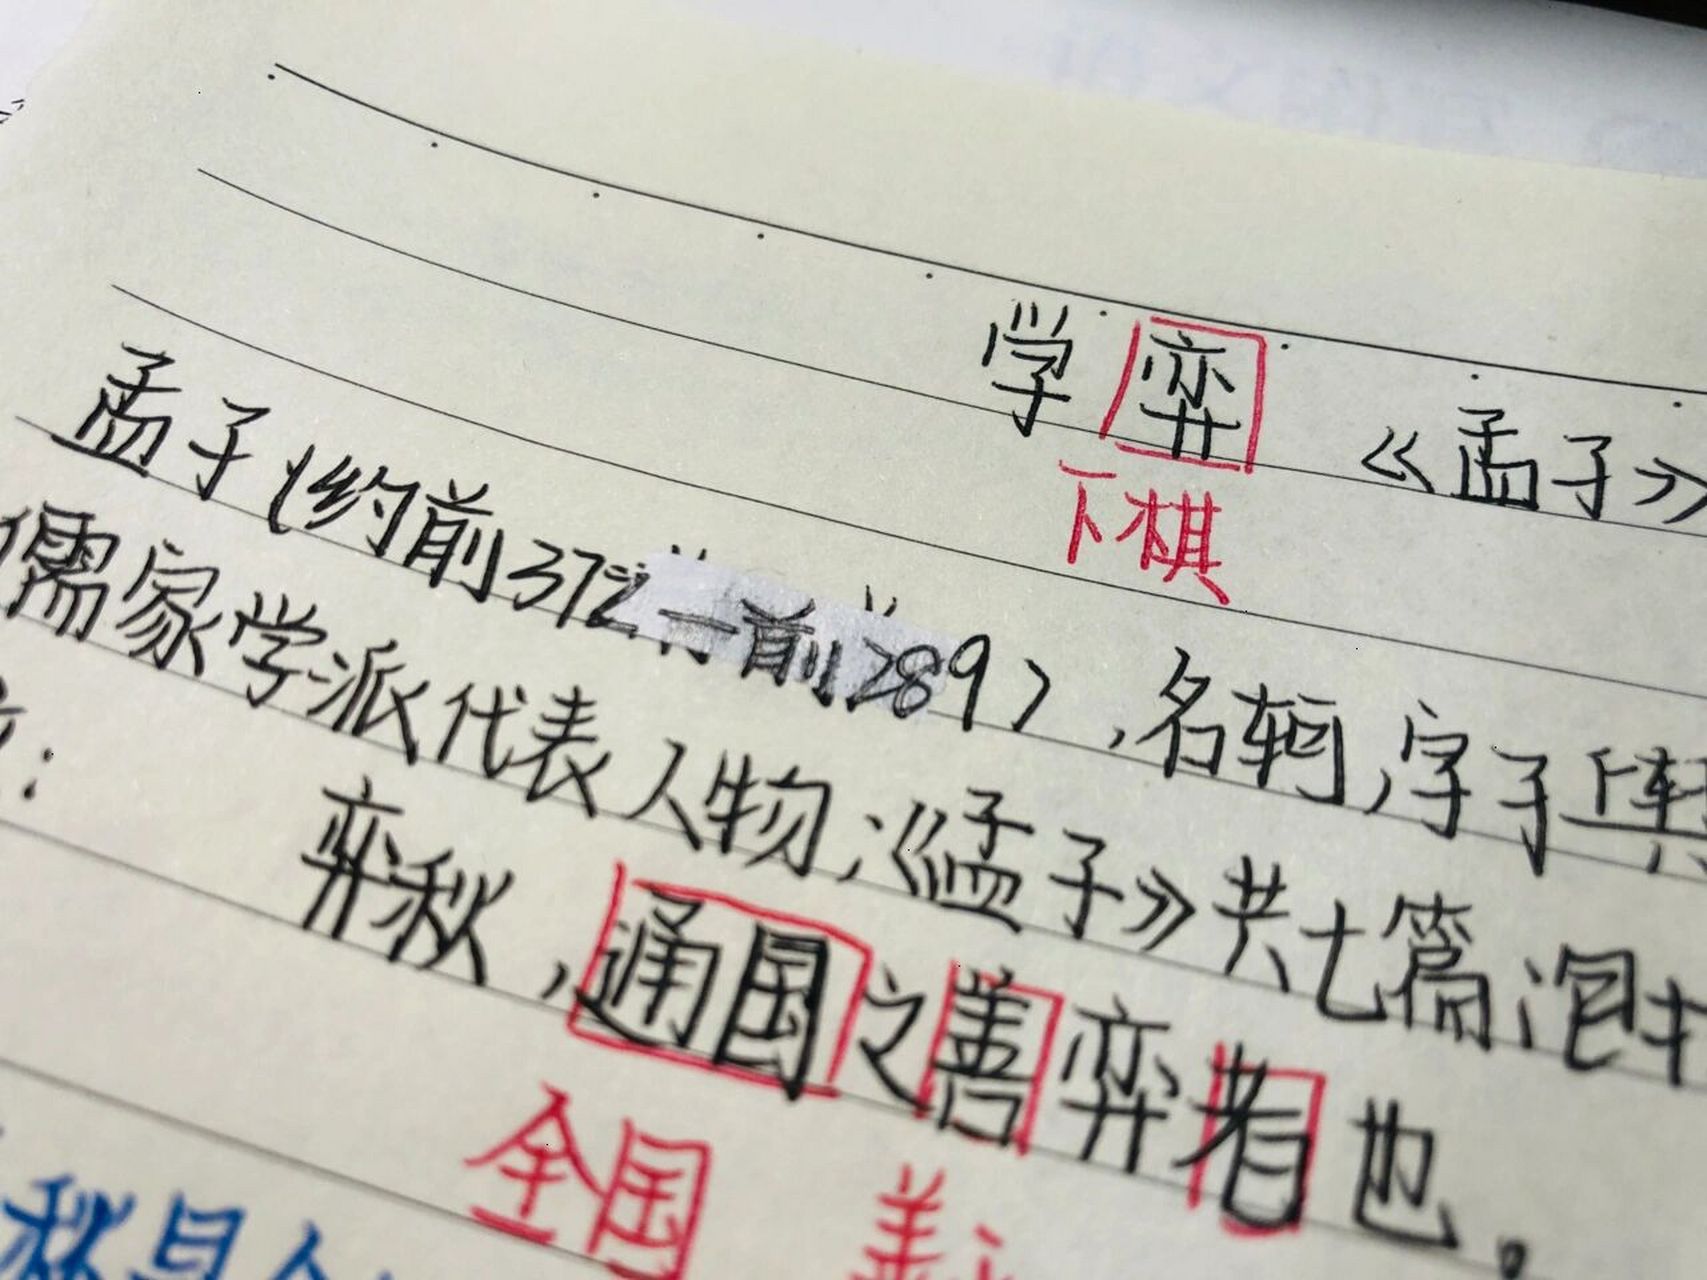 学弈 《孟子》
下棋
孟子(约前372—前289),名轲,字子舆
儒家学派代表人物;《孟子》共七篇
弈秋,通国之善弈者也。
全国 善
秋是